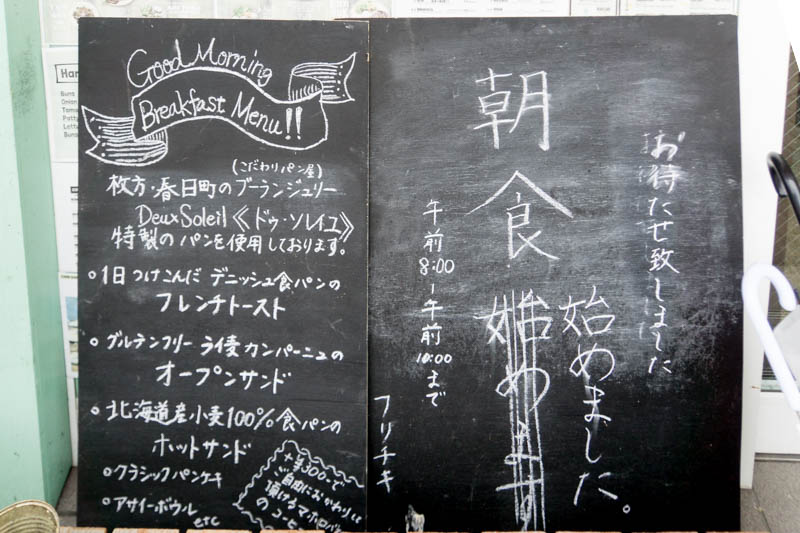 Good Morning
Breakfast Menu!!
(こだわりパン屋)
枚方・春日町のブーランジュリー
Deux Soleil《ドゥ・ソレイユ》
特製のパンを使用しております。
○1日つけこんだ デニッシュ食パンの
フレンチトースト
○グルテンフリー ライ麦カンパーニュの
オープンサンド
○北海道産小麦100%食パンの
ホットサンド
○クラシックパンケーキ
○アサイーボウル
etc
+¥300-で
ご自由におかわりして
頂けるマホロバ
のコーヒー
お待たせ致しました
朝食始めます
始めました。
午前8:00〜午前10:00まで
フリチキ